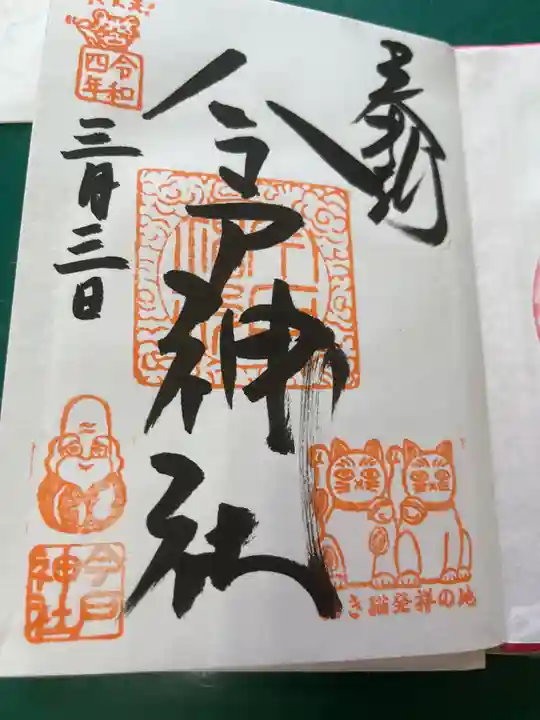 奉拝
今戸神社
令和
四年
三月三日
今戸
神社
き猫発祥の地